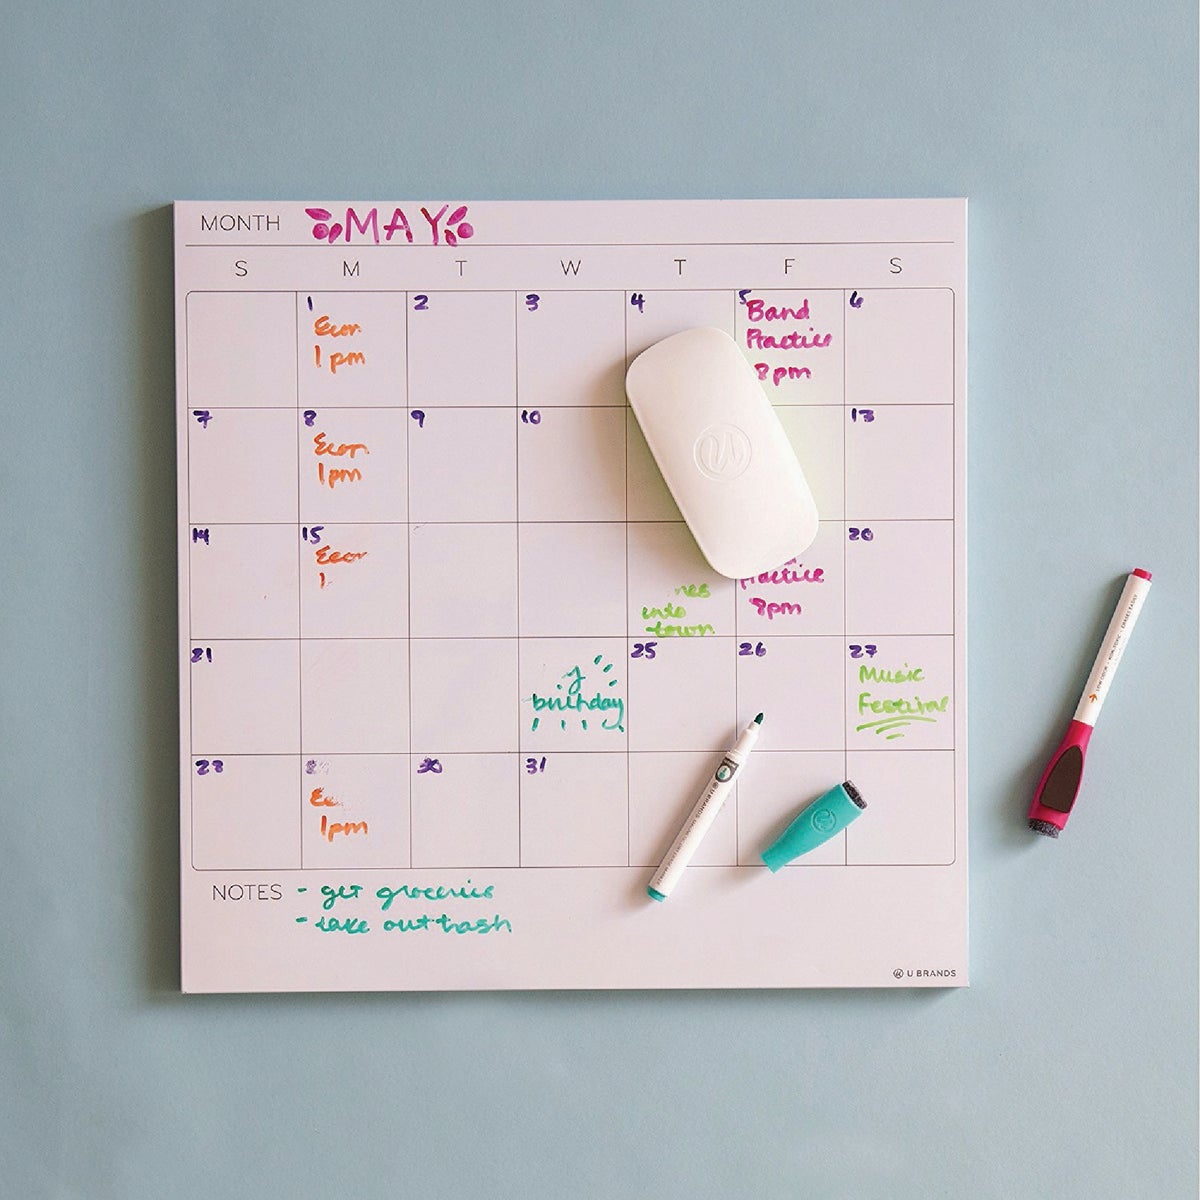 MONTH MAY
S M T W T F S
1 2 3 4 5 6
Econ Band
1pm Practice
8pm
7 8 9 10 13
Econ
1pm
14 15 20
Econ
1
Practice
into 8pm
town
21 25 26 27
birthday Music
Festival
28 30 31
1pm
NOTES - get groceries
- take out trash
U BRANDS